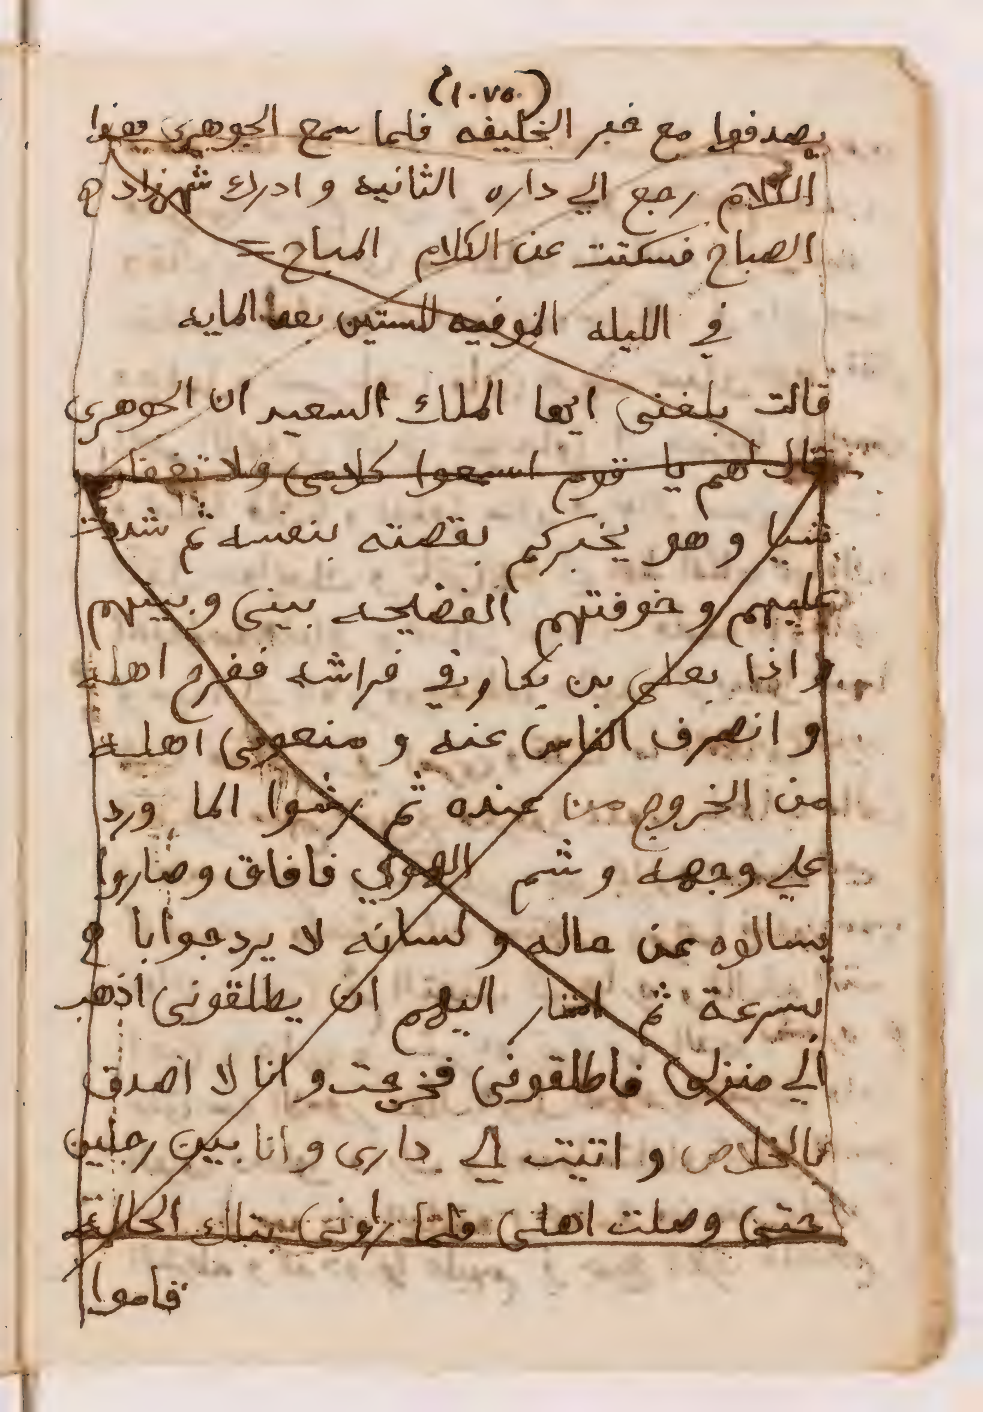 (١٠٧٥)
يصدفوا مع خبر الخليفه فلما سمع الجوهرى
الكلام رجع الي داره الثانيه و ادرك شهرزاد
الصباح فسكتت عن الكلام المباح =
في الليله الموفيه للستين بعد المايه
قالت بلغنى ايها الملك السعيد ان الجوهرى
قال لهم يا قوم اسمعوا كلامى ولا
شيا و هو يخبركم بقصته بنفسه ثم شددت
عليهم و خوفتهم الفضيحه بينى و بينهم
و اذا بعلى بن بكار في فراشه ففرح اهله
و انصرف الناس عنه و منعونى اهله
من الخروج من عنده ثم رشوا الما ورد
علي وجهه و شم الهوي فافاق وصاروا
يسالوه عن حاله و لسانه لا يرد جوابا
بسرعة ثم اشار اليهم ان يطلقونى اذهب
الي منزلى فاطلقونى فخرجت و انا لا اصدق
بالخلاص و اتيت الي دارى و انا بين رجلين
حتى وصلت اهلى فلما راونى بتلك الحالة
قاموا